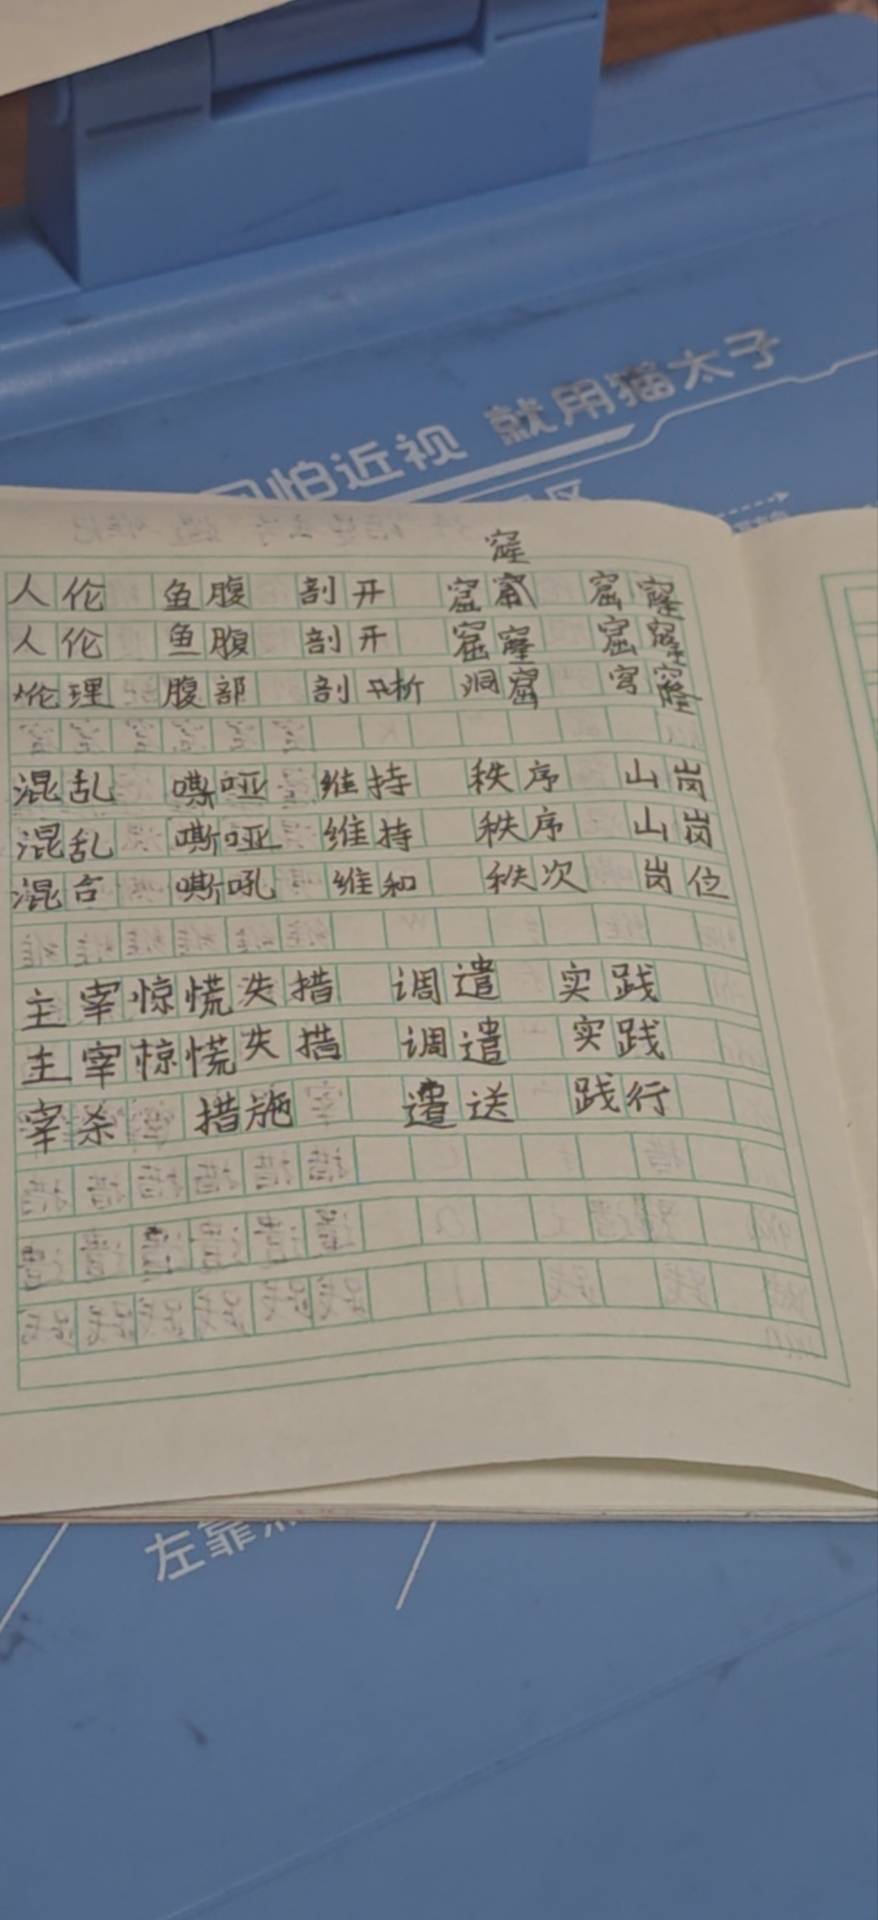 怕近视 就用猫太子
窿
人伦 鱼腹 剖开 窟窿 窟窿
人伦 鱼腹 剖开 窟窿 窟窿
伦理 腹部 剖析 洞窟 窿
混乱 嘶哑 维持 秩序 山岗
混乱 嘶哑 维持 秩序 山岗
混合 嘶吼 维和 秩次 岗位
主宰 惊慌失措 调遣 实践
主宰 惊慌失措 调遣 实践
宰杀 措施 遣送 践行
左靠